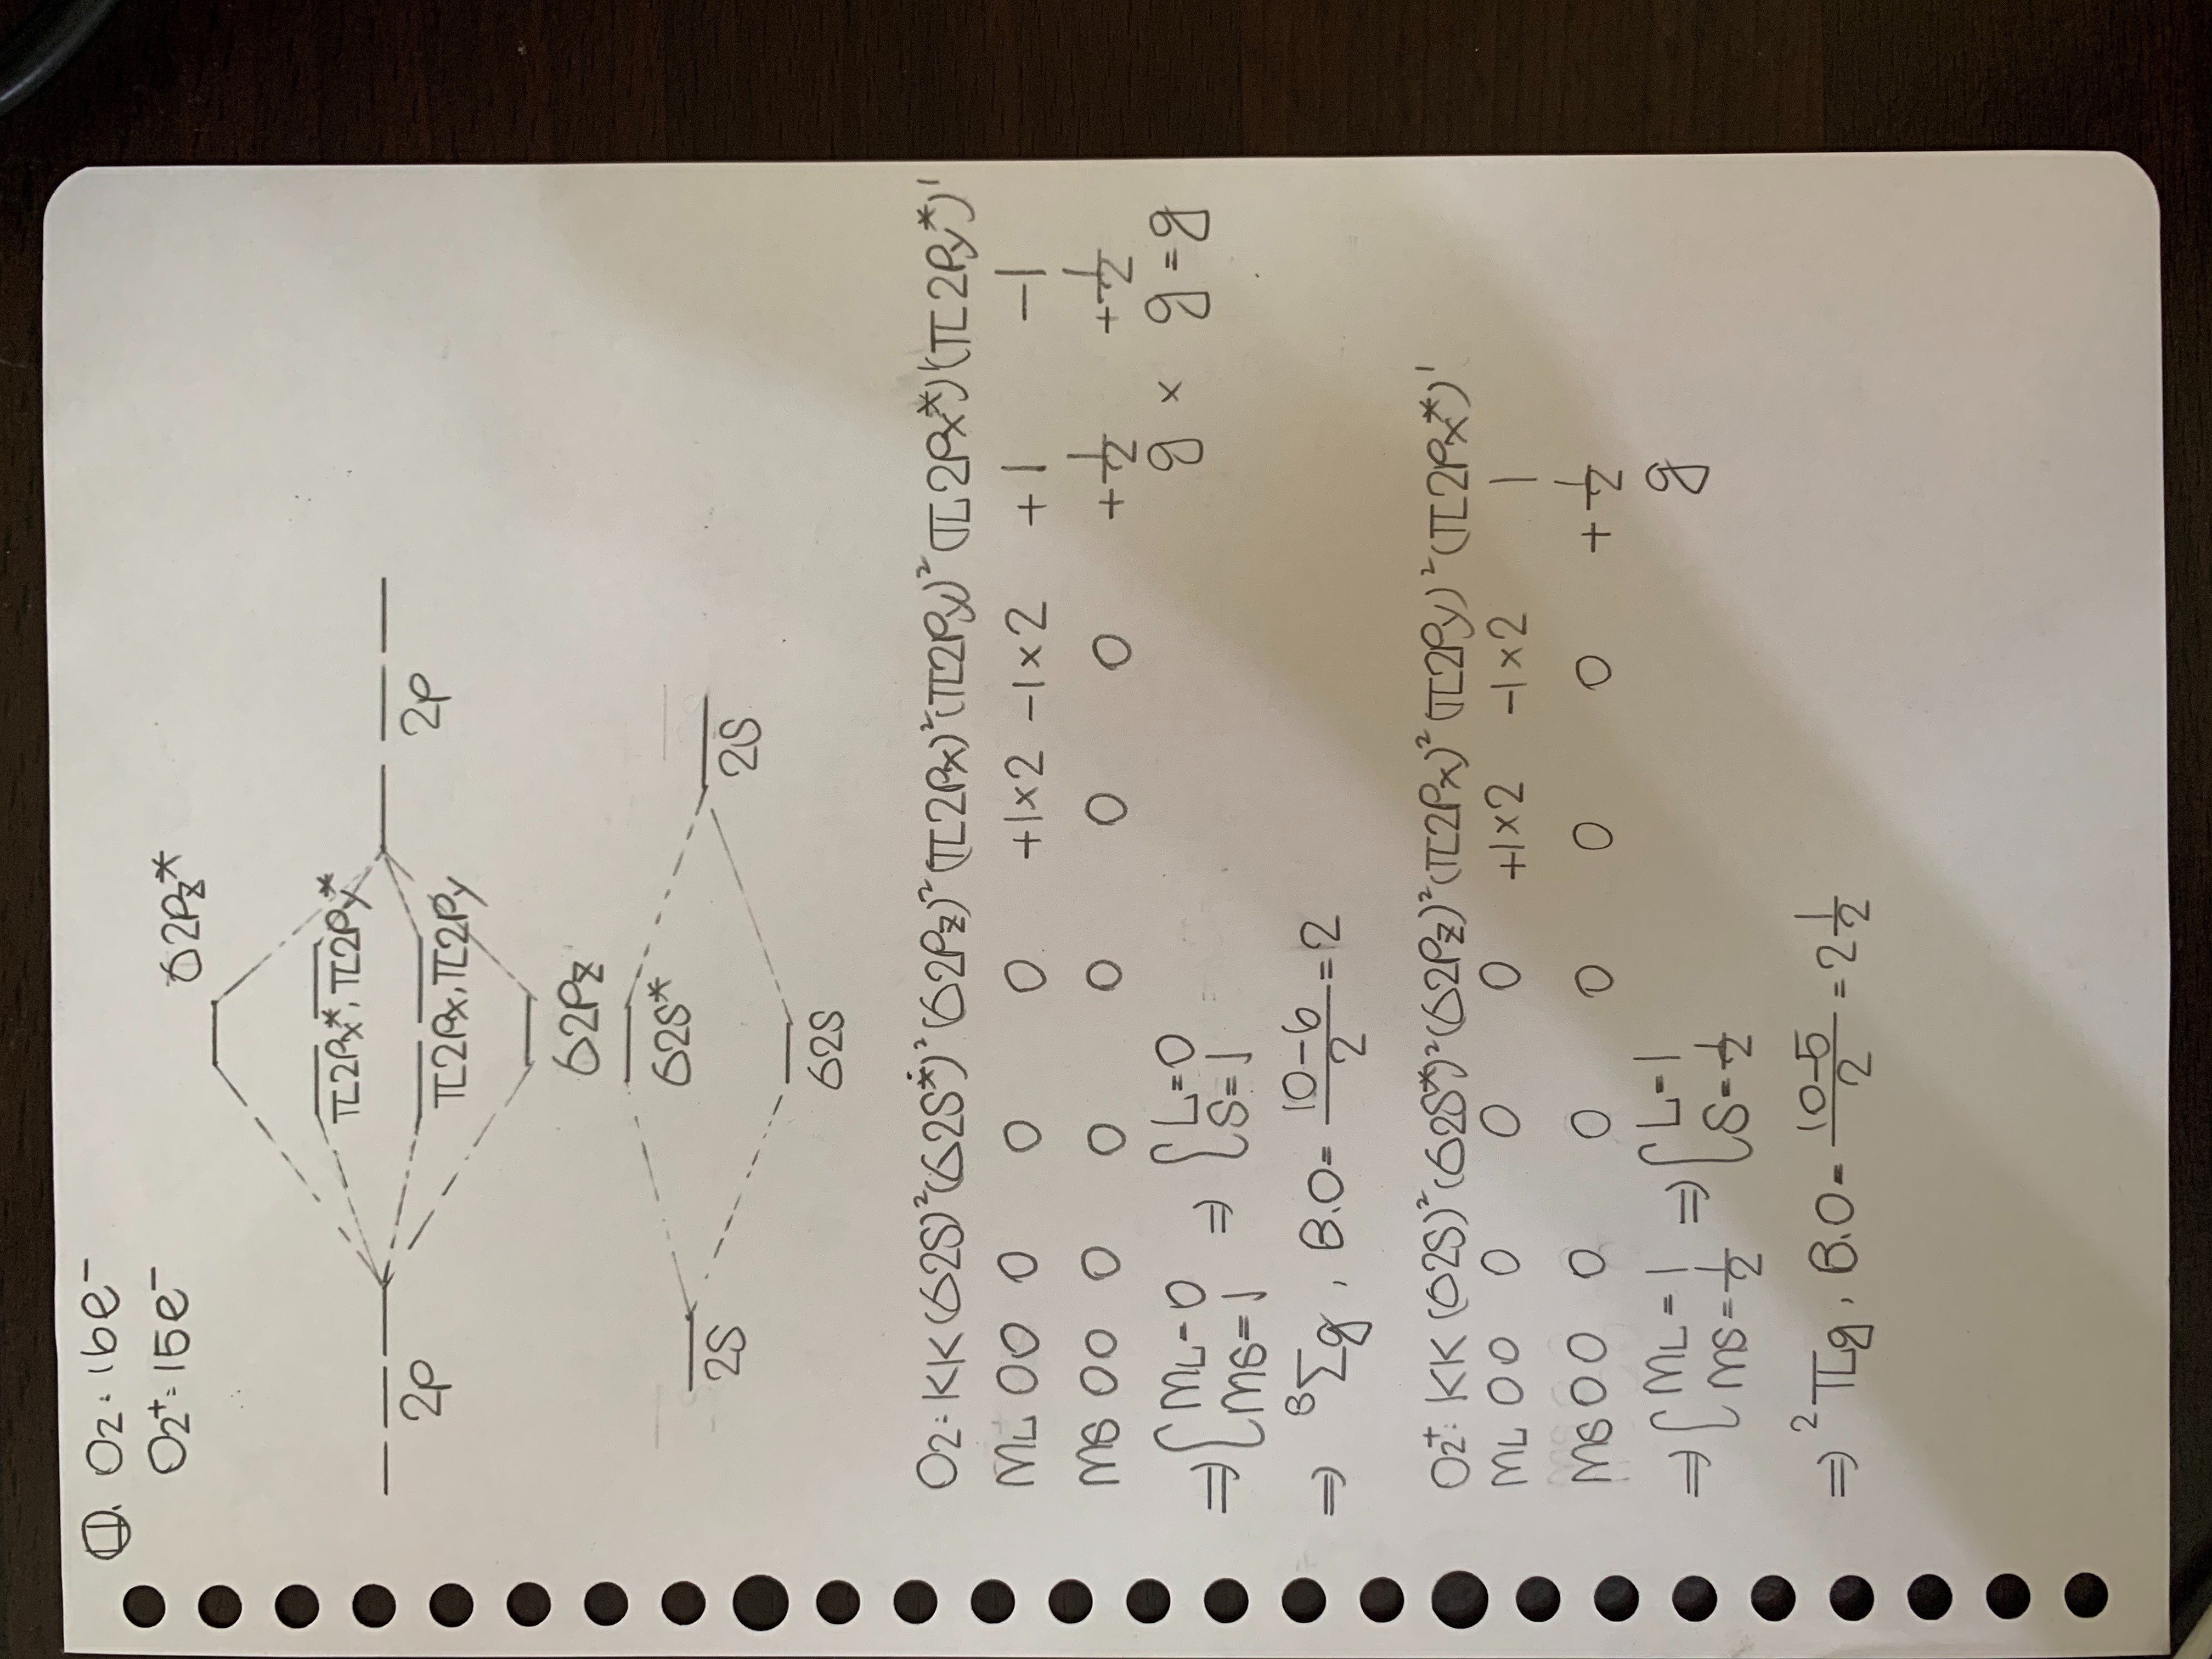 ④. O2: 16e⁻
O2⁺: 15e⁻
σ2Pz*
π2Px*, π2Py*
2p 2p
π2Px, π2Py
σ2Pz
σ2S*
2S 2S
σ2S
O2: KK (σ2S)² (σ2S*)² (σ2Pz)² (π2Px)² (π2Py)² (π2Px*)¹ (π2Py*)¹
ML 00 0 0 0 +1×2 -1×2 +1 -1
MS 00 0 0 0 0 0 +1/2 +1/2
g × g = g
⇒ { ML=0 ⇒ { L=0
MS=1 S=1
⇒ ³Σg, B.O= (10-6)/2 = 2
O2⁺: KK (σ2S)² (σ2S*)² (σ2Pz)² (π2Px)² (π2Py)² (π2Px*)¹
ML 00 0 0 0 +1×2 -1×2 1
MS 00 0 0 0 0 0 +1/2
g
⇒ { ML=1 ⇒ { L=1
MS=1/2 S=1/2
⇒ ²πg, B.O= (10-5)/2 = 2 1/2